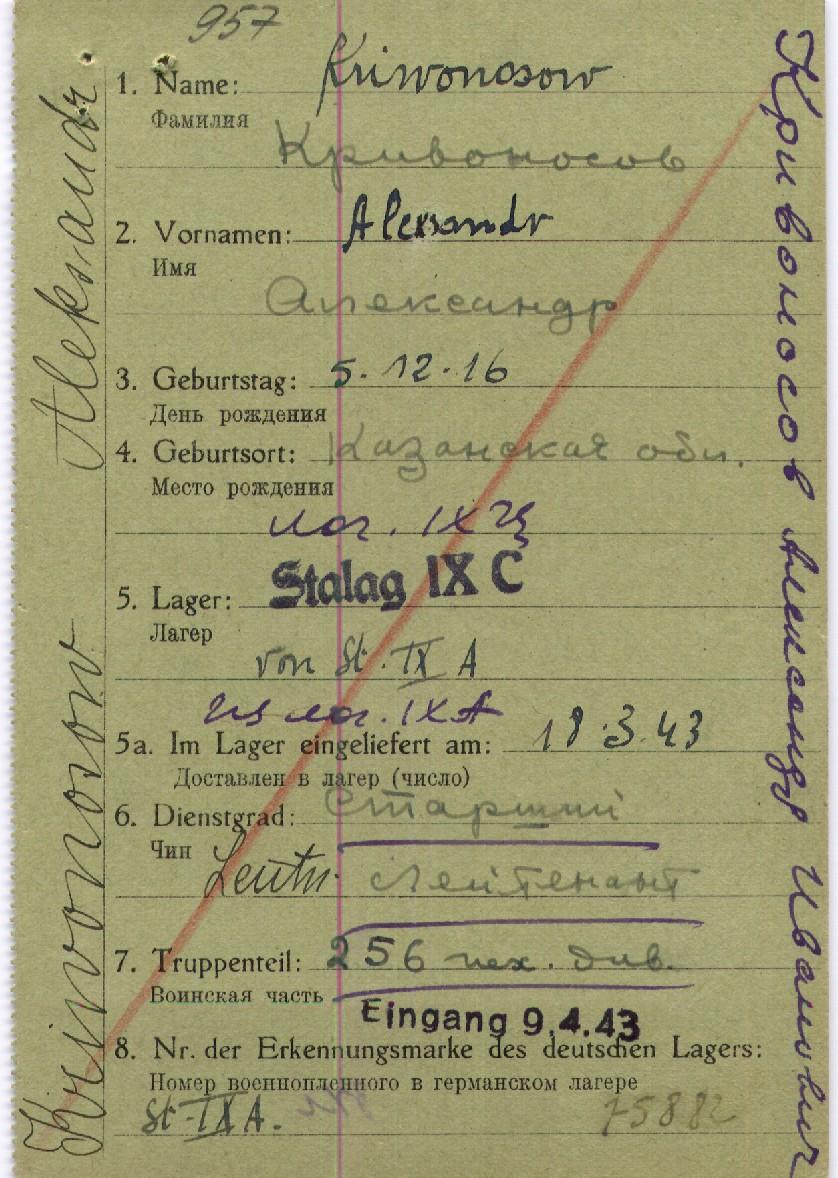 957
1. Name: Kriwonosow
Фамилия
Кривоносов
2. Vornamen: Alexsandr
Имя
Александр
3. Geburtstag: 5.12.16
День рождения
4. Geburtsort: Казанская обл.
Место рождения
лаг. IX Ц
5. Lager: Stalag IX C
Лагер
von St. IX A
из лаг. IX A
5a. Im Lager eingeliefert am: 18.3.43
Доставлен в лагер (число)
6. Dienstgrad: Старший
Чин
Leutn. Лейтенант
7. Truppenteil: 256 пех. див.
Воинская часть
Eingang 9.4.43
8. Nr. der Erkennungsmarke des deutschen Lagers:
Номер военнопленного в германском лагере
St-IX A. 75882
Kriwonosow Aleksandr
Кривоносов Александр Иванович